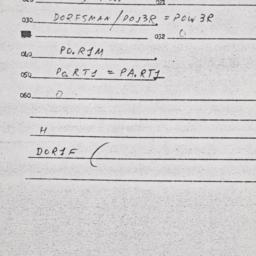 030 DORFSMAN/POJ3R = POW3R
032
040 PO.R1M
050 PA.RT1 = PA.RT1
060
H
DOR1F (